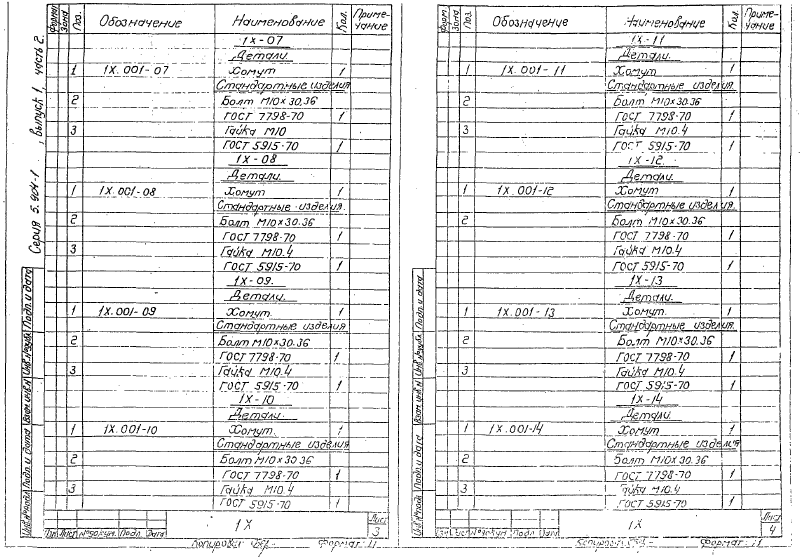 Серия 5.904-1, Выпуск 1, часть 2.
Формат Зона Поз. Обозначение Наименование Кол. Примечание
1Х-07
Детали.
1 1Х.001-07 Хомут 1
Стандартные изделия
2 Болт М10×30.36
ГОСТ 7798-70 1
3 Гайка М10
ГОСТ 5915-70 1
1Х-08
Детали.
1 1Х.001-08 Хомут 1
Стандартные изделия.
2 Болт М10×30.36
ГОСТ 7798-70 1
3 Гайка М10.4
ГОСТ 5915-70 1
1Х-09.
Детали.
1 1Х.001-09 Хомут. 1
Стандартные изделия
2 Болт М10×30.36
ГОСТ 7798-70 1
3 Гайка М10.4
ГОСТ 5915-70 1
1Х-10
Детали.
1 1Х.001-10 Хомут. 1
Стандартные изделия
2 Болт М10×30.36
ГОСТ 7798-70 1
3 Гайка М10.4
ГОСТ 5915-70 1
Изм. Лист № докум. Подп. Дата
1Х
Лист
3
Копировал Формат 11
Подп. и дата
Взам. инв. №
Подп. и дата
Форм. Зона Поз. Обозначение Наименование Кол. Примечание
1Х-11
Детали.
1 1Х.001-11 Хомут 1
Стандартные изделия
2 Болт М10×30.36
ГОСТ 7798-70 1
3 Гайка М10.4
ГОСТ 5915-70 1
1Х-12.
Детали.
1 1Х.001-12 Хомут 1
Стандартные изделия.
2 Болт М10×30.36
ГОСТ 7798-70 1
Гайка М10.4
ГОСТ 5915-70 1
1Х-13
Детали.
1 1Х.001-13 Хомут. 1
Стандартные изделия.
2 Болт М10×30.36
ГОСТ 7798-70 1
3 Гайка М10.4
ГОСТ 5915-70 1
1Х-14
Детали.
1 1Х.001-14 Хомут 1
Стандартные изделия
2 Болт М10×30.36
ГОСТ 7798-70 1
3 Гайка М10.4
ГОСТ 5915-70 1
Лист № докум. Подп. Дата
1Х
Лист
4
Копировал Формат 11
Подп. и дата
Взам. инв. №
Подп. и дата